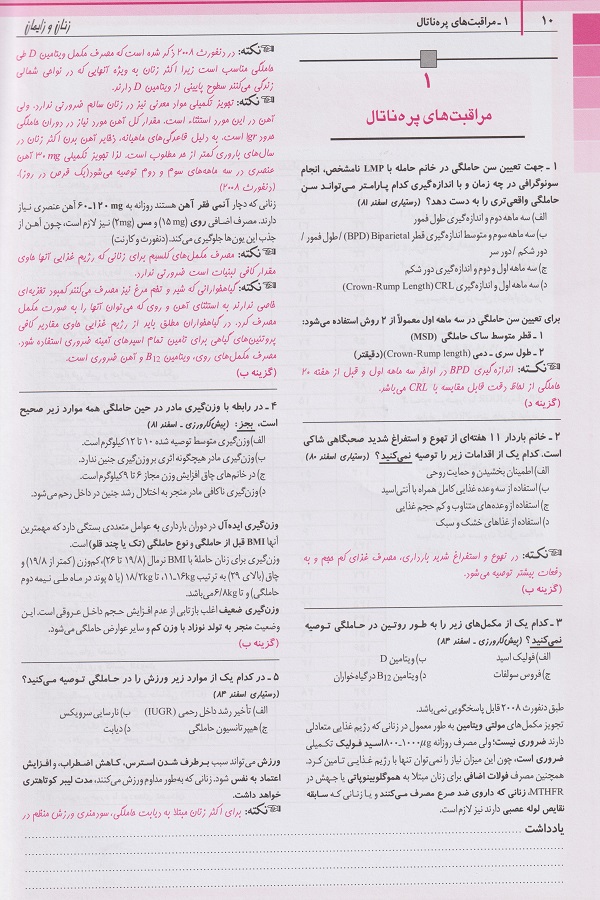 ۱۰
۱ ـ مراقبت‌های پره‌ناتال
زنان و زایمان
۱
مراقبت‌های پره‌ناتال
۱ ـ جهت تعیین سن حاملگی در خانم حامله با LMP نامشخص، انجام
سونوگرافی در چه زمان و با اندازه‌گیری کدام پارامتر می‌تواند سن
حاملگی واقعی‌تری را به دست دهد؟ (رستیاری اسفند ۸۱)
الف) سه ماهه دوم و اندازه‌گیری طول فمور
ب) سه ماهه سوم و متوسط اندازه‌گیری قطر Biparietal (BPD) / طول فمور /
دور شکم / دور سر
ج) سه ماهه اول و دوم و اندازه‌گیری دور شکم
د) سه ماهه اول و اندازه‌گیری CRL (Crown-Rump Length)
برای تعیین سن حاملگی در سه ماهه اول معمولاً از ۲ روش استفاده می‌شود:
۱ ـ قطر متوسط ساک حاملگی (MSD)
۲ ـ طول سری ـ دمی (Crown-Rump length) (دقیقتر)
نکته: اندازه‌گیری BPD در اواخر سه ماهه اول و قبل از هفته ۲۰
حاملگی از لحاظ دقت قابل مقایسه با CRL می‌باشد.
(گزینه د)
۲ ـ خانم باردار ۱۱ هفته‌ای از تهوع و استفراغ شدید صبحگاهی شاکی
است. کدام یک از اقدامات زیر را توصیه نمی‌کنید؟ (رستیاری اسفند ۸۰)
الف) اطمینان بخشیدن و حمایت روحی
ب) استفاده از سه وعده غذایی کامل همراه با آنتی‌اسید
ج) استفاده از وعده‌های متناوب و کم حجم غذایی
د) استفاده از غذاهای خشک و سبک
نکته: در تهوع و استفراغ شدید بارداری، مصرف غذای کم حجم و به
دفعات بیشتر توصیه می‌شود.
(گزینه ب)
۳ ـ کدام یک از مکمل‌های زیر را به طور روتین در حاملگی توصیه
نمی‌کنید؟ (پیش‌کارورزی ـ اسفند ۸۳)
الف) فولیک اسید
ب) ویتامین D
ج) فروس سولفات
د) ویتامین B12 در گیاه‌خواران
طبق دنفورث ۲۰۰۸ قابل پاسخگویی نمی‌باشد.
تجویز مکمل‌های مولتی ویتامین به طور معمول در زنانی که رژیم غذایی متعادلی
دارند ضروری نیست؛ ولی مصرف روزانه ۱۰۰۰ـ۸۰۰µg اسید فولیک تکمیلی
ضروری است، چون این میزان نیاز را نمی‌توان تنها با رژیم غذایی تامین کرد.
همچنین مصرف فولات اضافی برای زنان مبتلا به هموگلوبینوپاتی یا جهش در
MTHFR، زنانی که داروی ضد صرع مصرف می‌کنند و یا زنانی که سابقه
نقایص لوله عصبی دارند نیز لازم است.
یادداشت
نکته: در دنفورث ۲۰۰۸ ذکر شده است که مصرف مکمل ویتامین D طی
حاملگی مناسب است زیرا اکثر زنان به ویژه آنهایی که در نواحی شمالی
زندگی می‌کنند سطوح پایینی از ویتامین D دارند.
نکته: تجویز تکمیلی مواد معدنی نیز در زنان سالم ضرورتی ندارد، ولی
آهن در این مورد استثناء است. مقدار کل آهن مورد نیاز در دوران حاملگی
حدود ۱gr است. به دلیل قاعدگی‌های ماهیانه، ذخایر آهن بدن اکثر زنان در
سال‌های باروری کمتر از حد مطلوب است. لذا تجویز تکمیلی ۳۰ mg آهن
عنصری در سه ماهه‌های سوم و دوم توصیه می‌شود(یک قرص در روز).
(دنفورث ۲۰۰۸)
زنانی که دچار آنمی فقر آهن هستند روزانه به ۱۲۰ mg ـ ۶۰ آهن عنصری نیاز
دارند. مصرف اضافی روی (۱۵ mg) و مس (۲mg) نیز لازم است، چون آهن از
جذب این یون‌ها جلوگیری می‌کند. (دنفورث و کارنت)
نکته: مصرف مکمل‌های کلسیم برای زنانی که رژیم غذایی آنها حاوی
مقدار کافی لبنیات است ضرورتی ندارد.
نکته: گیاهخوارانی که شیر و تخم مرغ نیز مصرف می‌کنند کمبود تغذیه‌ای
خاصی ندارند به استثنای آهن و روی که می‌توان آنها را به صورت مکمل
مصرف کرد. در گیاهخواران مطلق باید از رژیم غذایی حاوی مقادیر کافی
پروتئین‌های گیاهی برای تامین تمام اسیدهای آمینه ضروری استفاده شود.
مصرف مکمل‌های روی، ویتامین B12 و آهن ضروری است.
(گزینه ب)
۴ ـ در رابطه با وزن‌گیری مادر در حین حاملگی همه موارد زیر صحیح
است، بجز: (پیش‌کارورزی ـ اسفند ۸۱)
الف) وزن‌گیری متوسط توصیه شده ۱۰ تا ۱۲ کیلوگرم است.
ب) وزن‌گیری مادر هیچگونه اثری بر وزن‌گیری جنین ندارد.
ج) در خانم‌های چاق افزایش وزن مجاز ۶ تا ۹ کیلوگرم است.
د) وزن‌گیری ناکافی مادر منجر به اختلال رشد جنین در داخل رحم می‌شود.
وزن‌گیری ایده‌آل در دوران بارداری به عوامل متعددی بستگی دارد که مهمترین
آنها BMI قبل از حاملگی و نوع حاملگی (تک یا چند قلو) است.
وزن‌گیری برای زنان حاملهٔ با BMI نرمال (۱۹/۸ تا ۲۶)، کم‌وزن (کمتر از ۱۹/۸) و
چاق (بالای ۲۹) به ترتیب ۱۶kg-۱۱، ۱۸/۲kg (یا ۵ پوند در ماه طی نیمه دوم
حاملگی) و تا ۶/۸kg می‌باشد.
وزن‌گیری ضعیف اغلب بازتابی از عدم افزایش حجم داخل عروقی است. این
وضعیت منجر به تولد نوزاد با وزن کم و سایر عوارض حاملگی می‌شود.
(گزینه ب)
۵ ـ در کدام یک از موارد زیر ورزش را در حاملگی توصیه می‌کنید؟
(رستیاری اسفند ۸۴)
الف) تأخیر رشد داخل رحمی (IUGR)
ب) نارسایی سرویکس
ج) هیپرتانسیون حاملگی
د) دیابت
ورزش می‌تواند سبب برطرف شدن استرس، کاهش اضطراب، و افزایش
اعتماد به نفس شود. زنانی که به‌طور مداوم ورزش می‌کنند، مدت لیبر کوتاهتری
خواهد داشت.
نکته: برای اکثر زنان مبتلا به دیابت حاملگی، سودمندی ورزش منظم در